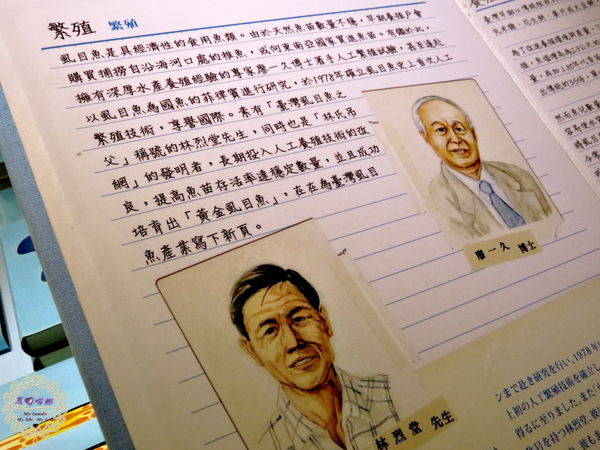 繁殖 繁殖
虱目魚是具經濟性的食用魚類。由於天然魚苗數量不穩,早期養殖戶會
購買捕撈自沿海河口處的稚魚,或向東南亞國家買進魚苗。有鑑於此,
擁有深厚水產養殖經驗的專家廖一久博士著手人工繁殖試驗,甚至遠赴
以虱目魚為國魚的菲律賓進行研究,於1978年確立虱目魚史上首次人工
繁殖技術,享譽國際。素有「臺灣虱目魚之
父」稱號的林烈堂先生,同時也是「林氏吊
網」的發明者,長期投入人工養殖技術的改
良,提高魚苗存活率達穩定數量,並且成功
培育出「黃金虱目魚」,在在為臺灣虱目
魚產業寫下新頁。
廖一久 博士
林烈堂 先生
ンまで赴き研究を行い、1978年
上初の人工繁殖技術を確立し
得るに至りました。また「
号を持つ林烈堂
My family
My life